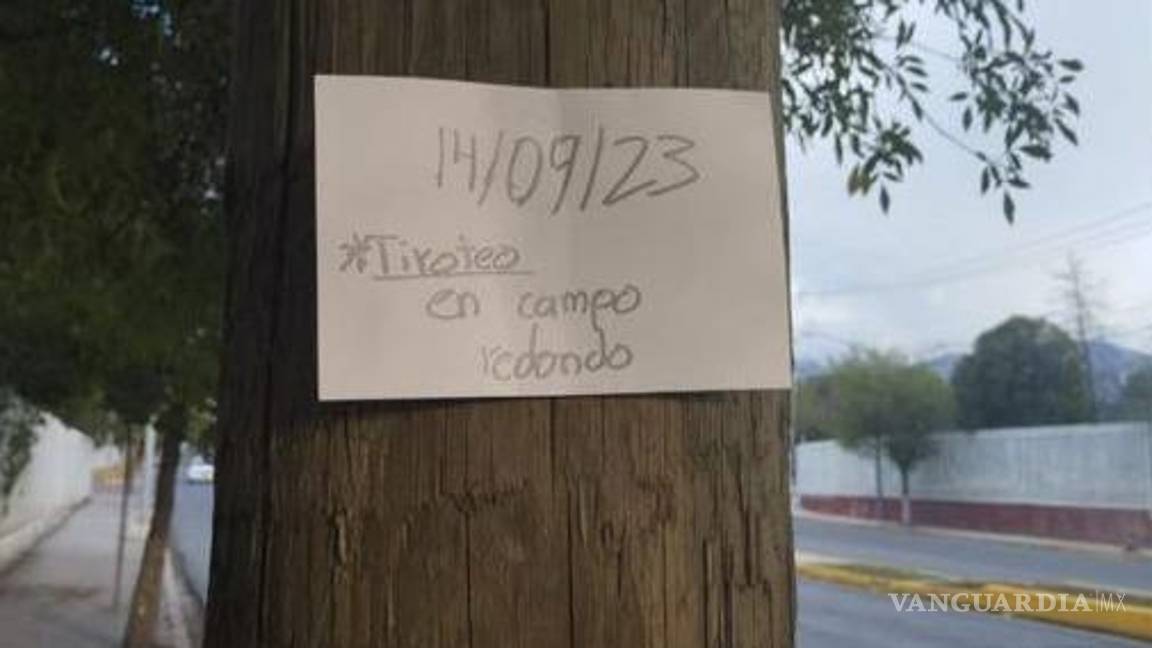 14/09/23
*Tiroteo
en campo
redondo
VANGUARDIA|MX